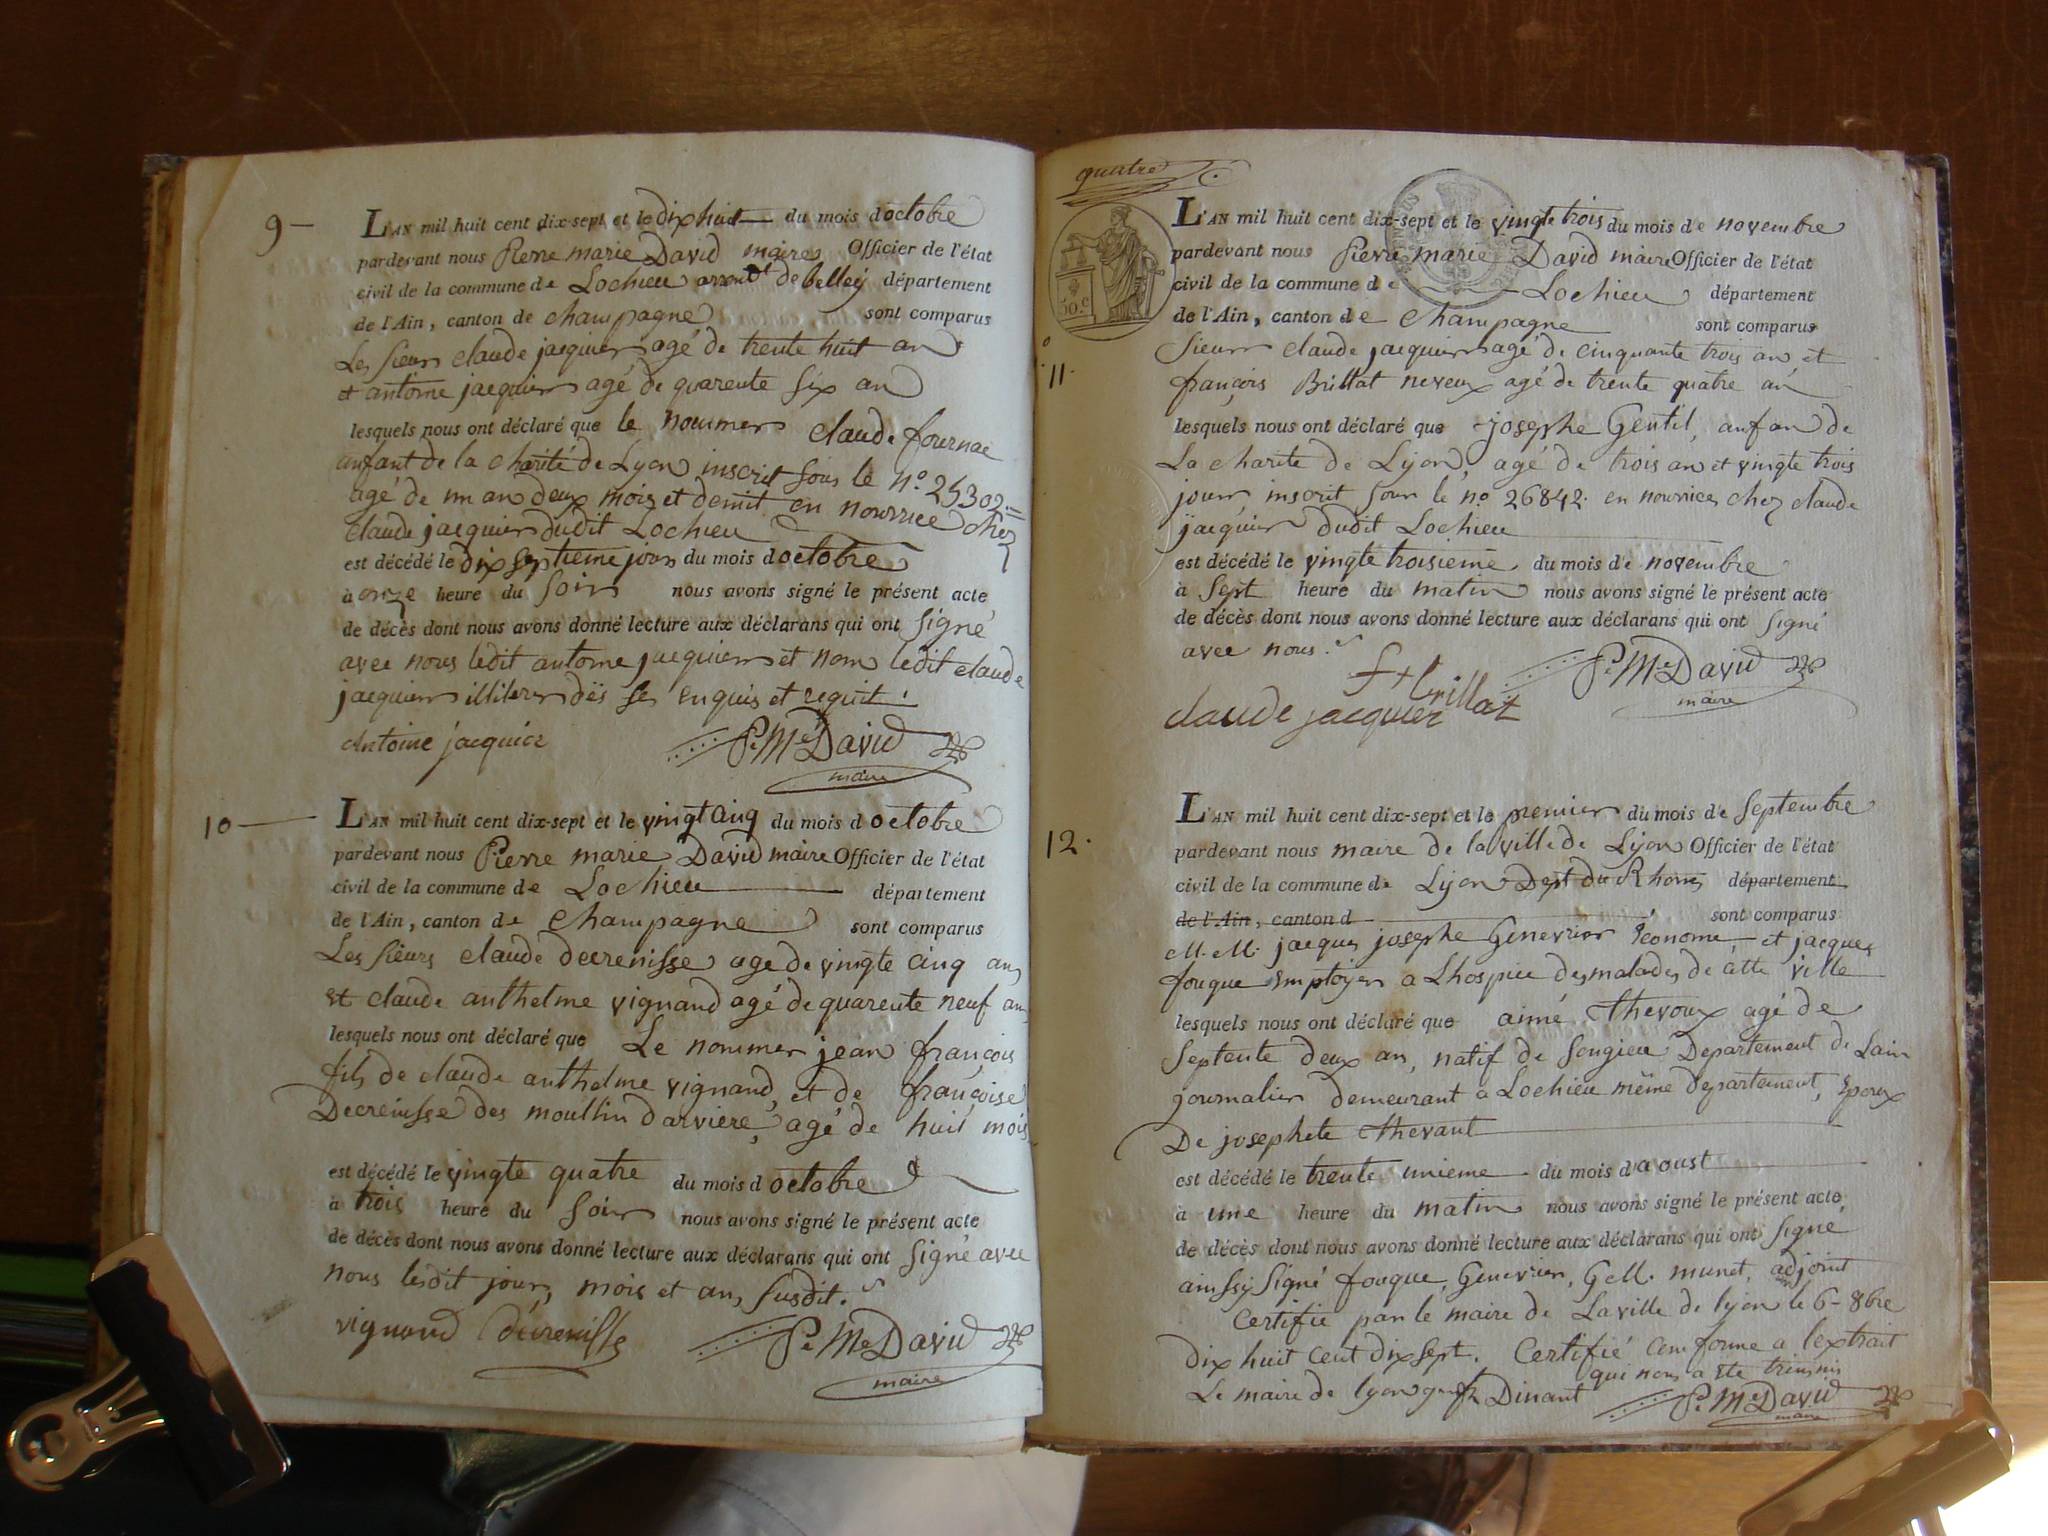 9 —
L'AN mil huit cent dix-sept et le dix huit du mois d octobre
pardevant nous Pierre marie David maire Officier de l'état
civil de la commune de Lochieu arront de belley département
de l'Ain, canton de champagne sont comparus
Les sieurs claude jacquier agé de trente huit an
et antoine jacquier agé de quarente six an
lesquels nous ont déclaré que le nommer claude fournae
anfant de la charité de Lyon inscrit sous le n.o 25302.
agé de un an deux mois et demit en nourrice chez
claude jacquier dudit Lochieu
est décédé le dix septieme jour du mois d octobre
à onze heure du soir nous avons signé le présent acte
de décès dont nous avons donné lecture aux déclarans qui ont signé
avec nous ledit antoine jacquier et non ledit claude
jacquier illiterer de enquis et requit.
Antoine jacquier
P.e M.e David
maire
10 —
L'AN mil huit cent dix-sept et le vingt cinq du mois d octobre
pardevant nous Pierre marie David maire Officier de l'état
civil de la commune de Lochieu département
de l'Ain, canton de champagne sont comparus
Les sieurs claude decrenisse age de vingte cinq an
et claude anthelme vignand agé de quarente neuf an
lesquels nous ont déclaré que Le nommer jean françois
fils de claude anthelme vignand, et de françoise
Decrenisse des moullin d'arviere, agé de huit mois
est décédé le vingte quatre du mois d octobre
à trois heure du soir nous avons signé le présent acte
de décès dont nous avons donné lecture aux déclarans qui ont signé avec
nous lesdit jour, mois et an, susdit.
vignand decrenisse
P.e M.e David
maire
quatre
50.c
11.
L'AN mil huit cent dix-sept et le vingte trois du mois de novembre
pardevant nous Pierre marie David maire Officier de l'état
civil de la commune de Lochieu département
de l'Ain, canton de champagne sont comparus
sieurs claude jacquier agé de cinquante trois an et
françois Brillat neveux agé de trente quatre an
lesquels nous ont déclaré que josephe Gentil, anfan de
La charite de Lyon, agé de trois an et vingte trois
jour inscrit sour le n.o 26842. en nourrice chez claude
jacquier dudit Lochieu
est décédé le vingte troisieme du mois de novembre
à sept heure du matin nous avons signé le présent acte
de décès dont nous avons donné lecture aux déclarans qui ont signé
avec nous.
f + brillat
P.e M.e David
maire
claude jacquier
12.
L'AN mil huit cent dix-sept et le premier du mois de septembre
pardevant nous maire de la ville de Lyon Officier de l'état
civil de la commune de Lyon Dept du Rhone département
de l'Ain, canton d sont comparus
M. M. jacques josephe Genevrier économe, et jacques
fouque employer a Lhospice des malades de cette ville
lesquels nous ont déclaré que aimé Thevoux agé de
septente deux an, natif de songieu Departement de Lain
journalier demeurant a Lochieu même departement, Epoux
De josephete thevant
est décédé le trente unieme du mois d'aoust
à une heure du matin nous avons signé le présent acte
de décès dont nous avons donné lecture aux déclarans qui ont signé
ainssy signé fouque, Genevrier, G.M. munet, adjoint
certifie par le maire de La ville de lyon le 6 - 8bre
dix huit cent dix sept. Certifié conforme a lextrait
qui nous a ete trensmis
Le maire de lyon Dinant P.e M.e David
maire